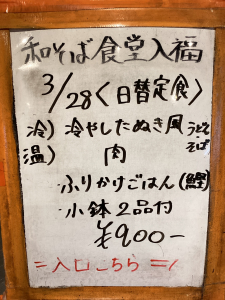 和そば食堂入福
3/28〈日替定食〉
冷) 冷やしたぬき風 うどん・そば
温) 肉
ふりかけごはん(鰹)
小鉢2品付
¥900-
=入口こちら=